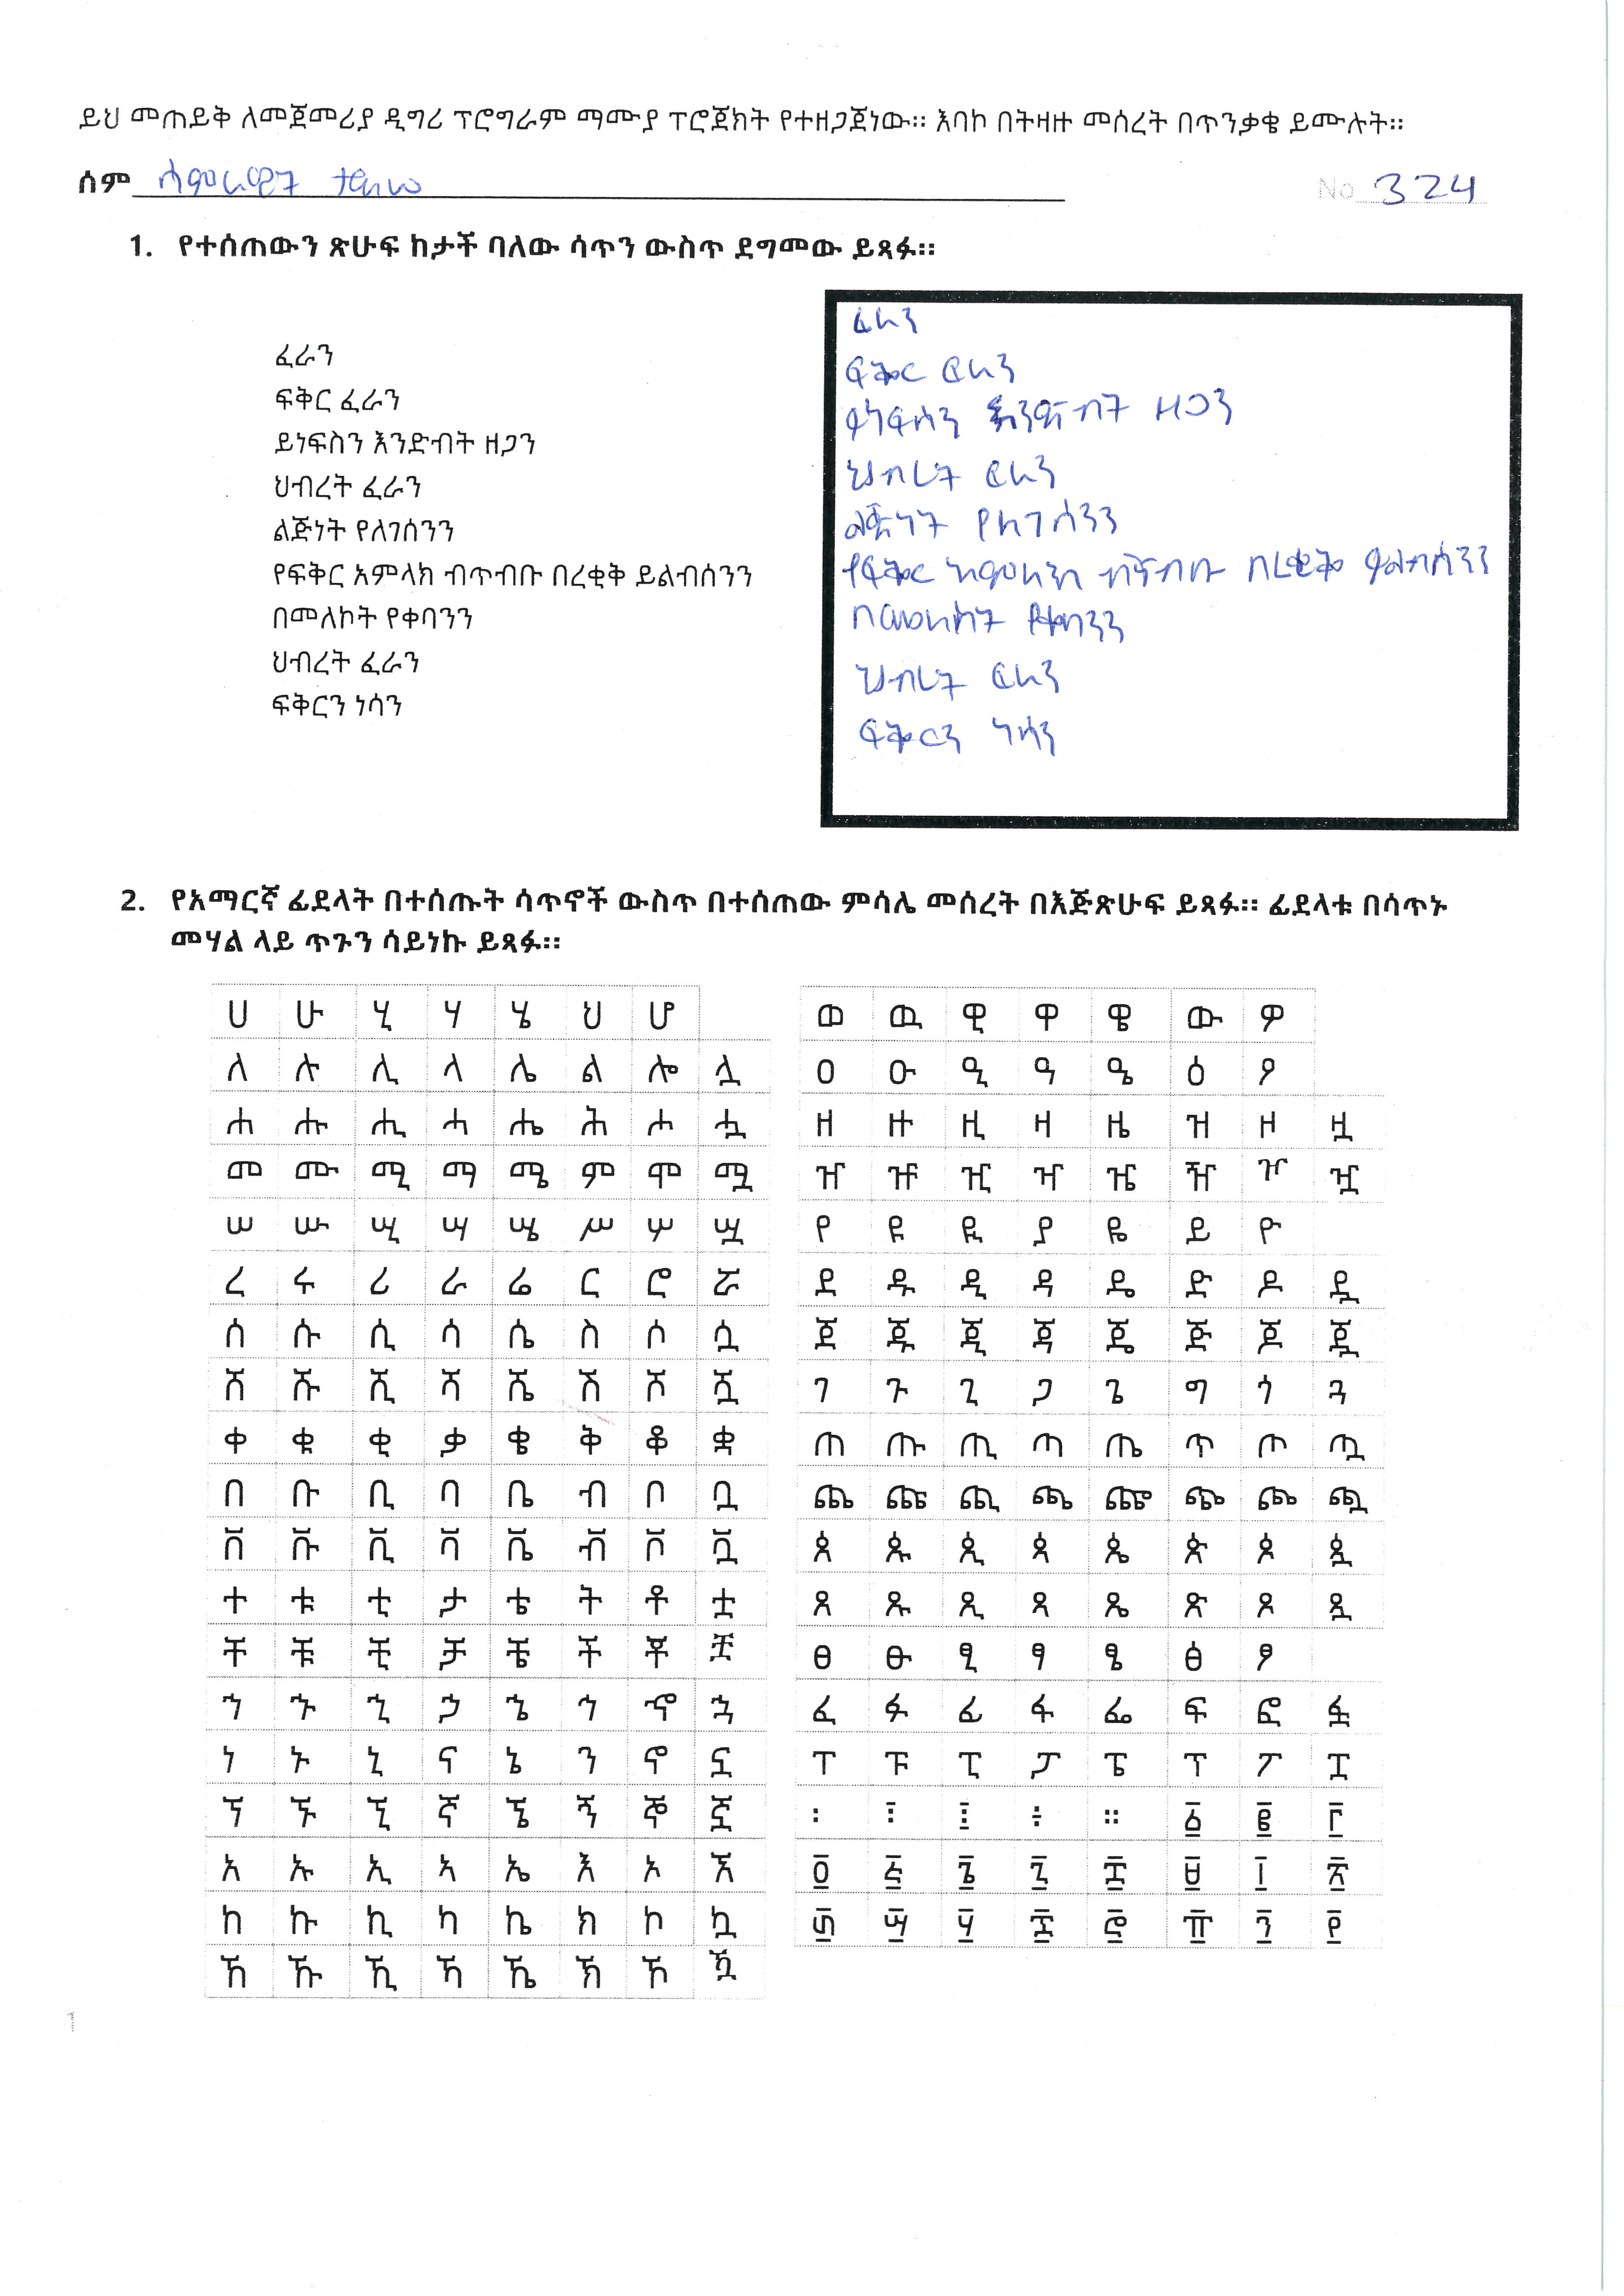 ይህ መጠይቅ ለመጀመሪያ ዲግሪ ፕሮግራም ማሙያ ፕሮጀክት የተዘጋጀነው። እባኮ በትዛዙ መሰረት በጥንቃቄ ይሙሉት።
ሰም ሳምራዊት No 324
1. የተሰጠውን ጽሁፍ ከታች ባለው ሳጥን ውስጥ ደግመው ይጻፉ።
ፈራን
ፍቅር ፈራን
ይነፍስን እንድብት ዘጋን
ህብረት ፈራን
ልጅነት የለገሰንን
የፍቅር አምላክ ብጥብቡ በረቂቅ ይልብሰንን
በመለኮት የቀባንን
ህብረት ፈራን
ፍቅርን ነሳን
ፈራን
ፍቅር ፈራን
ይነፍስን እንድብት ዘጋን
ህብረት ፈራን
ልጅነት የለገሰንን
የፍቅር አምላክ ብጥብቡ በረቂቅ ይልብሰንን
በመለኮት የቀባንን
ህብረት ፈራን
ፍቅርን ነሳን
2. የአማርኛ ፊደላት በተሰጡት ሳጥኖች ውስጥ በተሰጠው ምሳሌ መሰረት በእጅጽሁፍ ይጻፉ። ፊደላቱ በሳጥኑ
መሃል ላይ ጥጉን ሳይነኩ ይጻፉ።
ሀ ሁ ሂ ሃ ሄ ህ ሆ
ለ ሉ ሊ ላ ሌ ል ሎ ሏ
ሐ ሑ ሒ ሓ ሔ ሕ ሖ ሗ
መ ሙ ሚ ማ ሜ ም ሞ ሟ
ሠ ሡ ሢ ሣ ሤ ሥ ሦ ሧ
ረ ሩ ሪ ራ ሬ ር ሮ ሯ
ሰ ሱ ሲ ሳ ሴ ስ ሶ ሷ
ሸ ሹ ሺ ሻ ሼ ሽ ሾ ሿ
ቀ ቁ ቂ ቃ ቄ ቅ ቆ ቋ
በ ቡ ቢ ባ ቤ ብ ቦ ቧ
ቨ ቩ ቪ ቫ ቬ ቭ ቮ ቯ
ተ ቱ ቲ ታ ቴ ት ቶ ቷ
ቸ ቹ ቺ ቻ ቼ ች ቾ ቿ
ኀ ኁ ኂ ኃ ኄ ኅ ኆ ኋ
ነ ኑ ኒ ና ኔ ን ኖ ኗ
ኘ ኙ ኚ ኛ ኜ ኝ ኞ ኟ
አ ኡ ኢ ኣ ኤ እ ኦ ኧ
ከ ኩ ኪ ካ ኬ ክ ኮ ኳ
ኸ ኹ ኺ ኻ ኼ ኽ ኾ ዃ
ወ ዉ ዊ ዋ ዌ ው ዎ
ዐ ዑ ዒ ዓ ዔ ዕ ዖ
ዘ ዙ ዚ ዛ ዜ ዝ ዞ ዟ
ዠ ዡ ዢ ዣ ዤ ዥ ዦ ዧ
የ ዩ ዪ ያ ዬ ይ ዮ
ደ ዱ ዲ ዳ ዴ ድ ዶ ዷ
ጀ ጁ ጂ ጃ ጄ ጅ ጆ ጇ
ገ ጉ ጊ ጋ ጌ ግ ጎ ጓ
ጠ ጡ ጢ ጣ ጤ ጥ ጦ ጧ
ጨ ጩ ጪ ጫ ጬ ጭ ጮ ጯ
ጰ ጱ ጲ ጳ ጴ ጵ ጶ ጷ
ጸ ጹ ጺ ጻ ጼ ጽ ጾ ጿ
ፀ ፁ ፂ ፃ ፄ ፅ ፆ
ፈ ፉ ፊ ፋ ፌ ፍ ፎ ፏ
ፐ ፑ ፒ ፓ ፔ ፕ ፖ ፗ
፡ ፣ ፤ ÷ ። ፩ ፪ ፫
፬ ፭ ፮ ፯ ፰ ፱ ፲ ፳
፴ ፵ ፶ ፷ ፸ ፹ ፺ ፻
1